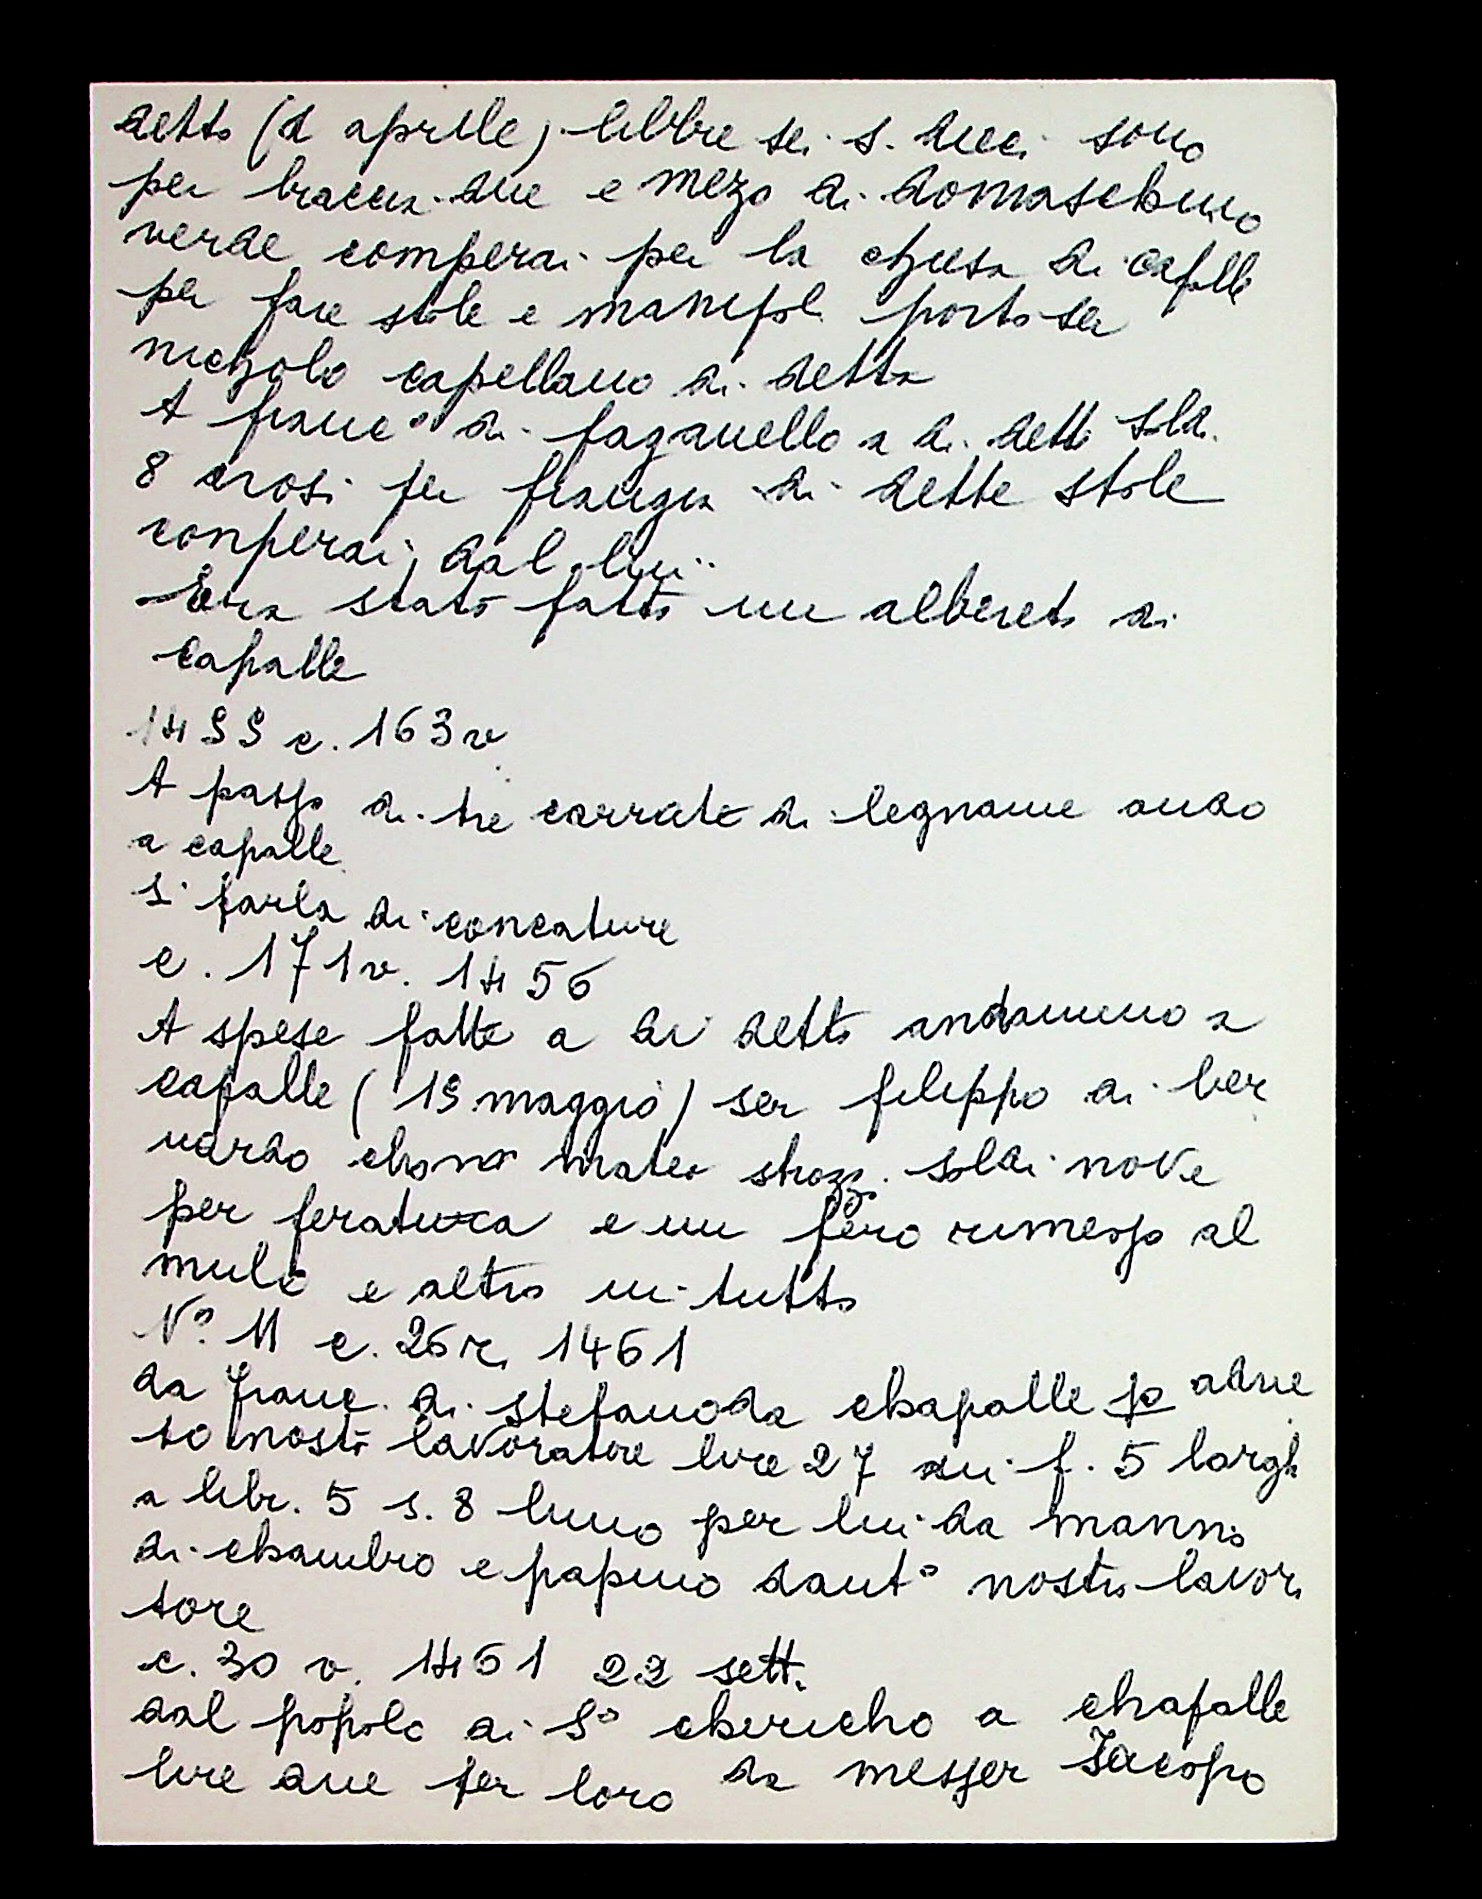 detto (2 aprile) libbre sei s. dieci sono
per braccia due e mezo di domaschino
verde comperai per la chiesa di capalle
per fare stole e manipoli porto ser
nicholo capellano di detta
A franc° di fazanello a di detti soldi
8 grosi per frangia di dette stole
conperai dal lui
Era stato fatto un albereto di
capalle
1455 c. 163v
A passo di tre carrate di legname ando
a capalle
si parla di concature
c. 171v. 1456
A spese fatte a di detto andammo a
capalle (19 maggio) ser filippo di ber
nardo chon mateo strozzi soldi nove
per feratura e un fero rimesso al
mulo e altro in tutto
N° 11 c. 26r. 1461
da franc. di stefano da chapalle
nosto lavoratore lire 27 f. 5 largh
a libr. 5 s. 8 luno per lui da manno
di chambio e papino dant° nosto lavor
tore
c. 30 v. 1461 22 sett.
dal popolo di S° chiricho a chapalle
lire due per loro da messer Jacopo